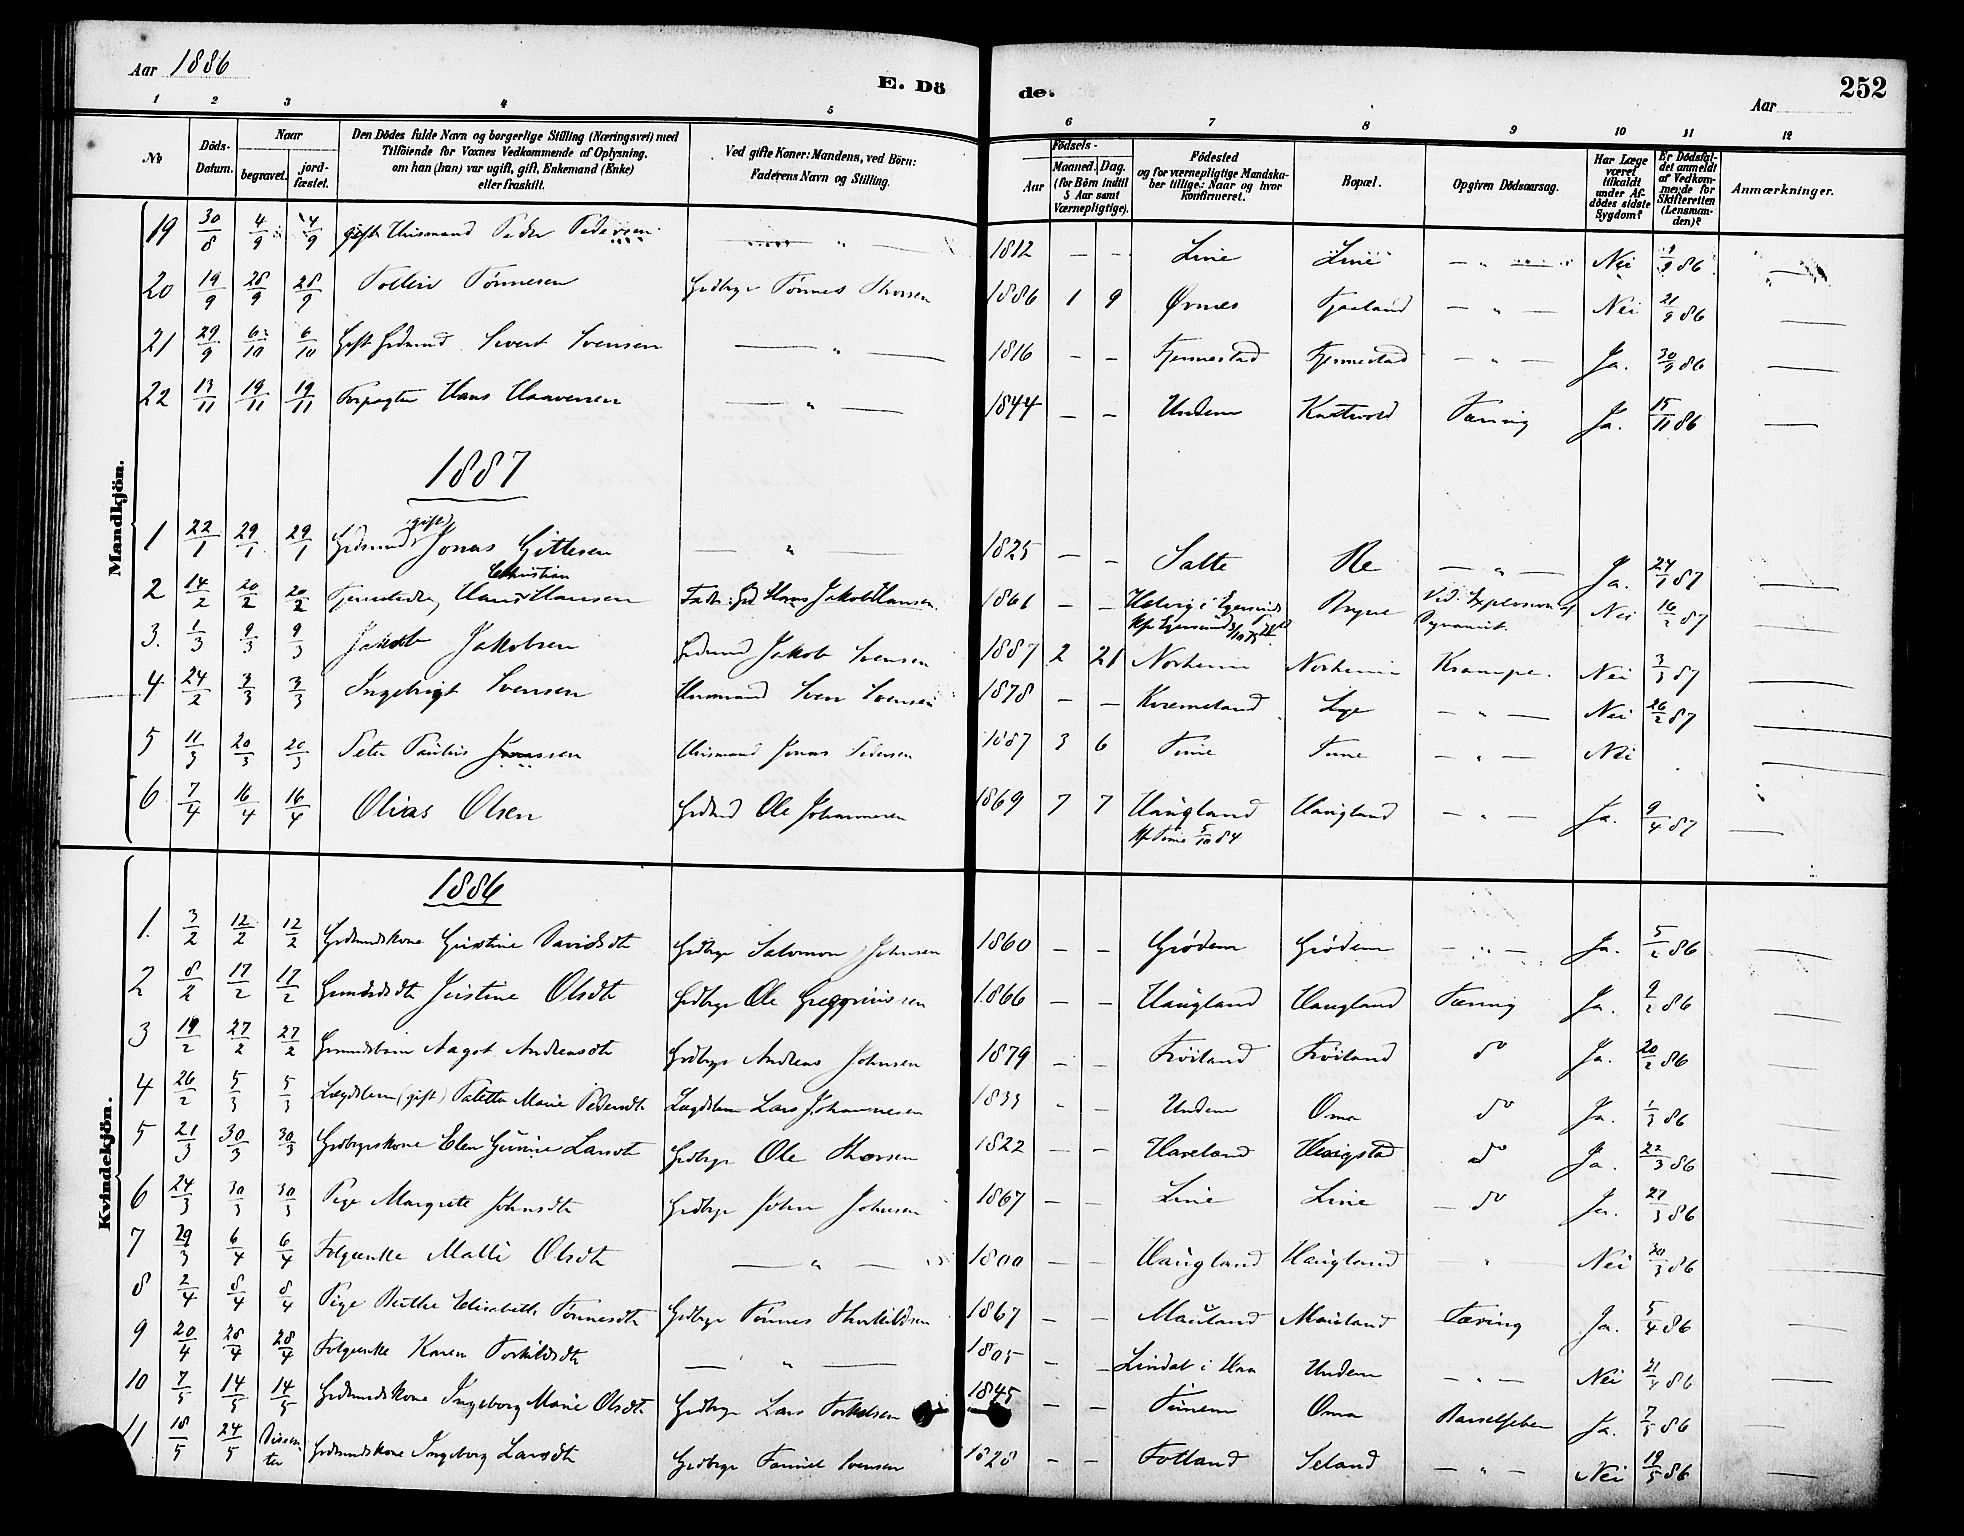 Aar 1886
E. Dö
de.
Aar
252
1 2 3 4 5 6 7 8 9 10 11 12
No
Döds-Datum.
Naar
begravet.
jord-fæstet.
Den Dödes fulde Navn og borgerlige Stilling (Næringsvei) med
Tilföiende for Voxnes Vedkommende af Oplysning,
om han (hun) var ugift, gift, Enkemand (Enke)
eller fraskilt.
Ved gifte Koner: Mandens, ved Börn:
Faderens Navn og Stilling.
Födsels-
Aar
Maaned. Dag.
(for Börn indtil
5 Aar samt
Værnepligtige).
Födested
og for værnepligtige Mandska-
ber tillige: Naar og hvor
konfirmeret.
Bopæl.
Opgiven Dödsaarsag.
Har Læge
været
tilkaldt
under Af-
dödes sidste
Sygdom?
Er Dödsfal-
det anmeldt
af Vedkom-
mende for
Skifteretten
(Lensman-
den)?
Anmærkninger.
Mandkjön.
19 30/8 4/9 4/9 gift Huusmand Peder Pedersen — " — 1812 — — Line Line — " — Nei 1/9 86 —
20 19/9 28/9 28/9 Tollein Tønnesen Grdbrgr Tønnes Thorsen 1886 1 9 Ørnes Fjæland — " — Nei 21/9 86 —
21 29/9 6/10 6/10 Gift Grdmd Sivert Svensen — " — 1816 — — Fjermestad Fjermestad — " — Ja. 30/9 86 —
22 13/11 19/11 19/11 Forpagter Hans Haavorsen — " — 1844 — — Undem Kartvold Tæring Ja. 15/11 86 —
1887
1 22/1 29/1 29/1 Grdmand (gift) Jonas Gittesen — " — 1825 — — Salte Re — " — Ja. 24/1 87 —
2 14/2 20/2 20/2 Hans Christian Hansen Fader: Hans Jakob Hansen 1861 — — Helvig i Egersund Bryne Ved Explosion af Dynamit. Nei 16/2 87 —
3. 1/3 9/3 9/3 Jakob Jakobsen Grdmd Jakob Svensen 1887 2 21 Norheim Norheim Krampe. Nei 3/3 87 —
4 24/2 3/3 3/3 Ingebrigt Svensen Huusmand Sven Svensen 1878 — — Kverneland Lye — " — Nei 26/2 87 —
5 11/3 20/3 20/3 Peter Paulus Jonassen Huusmand Jonas Pedersen 1887 3 6 Time Time — " — Nei —
6 7/4 16/4 16/4 Olias Olsen Grdmd Ole Johannesen 1869 7 7 Haugland Haugland — " — Ja. 9/4 87 —
Kf Time 5/10 84
Kvindekjön.
1886
1. 3/2 12/2 12/2 Grdmandskone Gurine Davidsdtr Grdbrgr Salomon Johnsen 1860 — — Grødem Grødem — " — Ja. 5/2 86 —
2 8/2 17/2 17/2 Justine Olsdtr Grdbrgr Ole Greggoriussen 1866 — — Haugland Haugland Tæring Ja. 9/2 86 —
3 19/2 27/2 27/2 Aagot Andreasdtr Grdbrgr Andreas Johnsen 1879 — — Frøiland Frøiland do Ja. 20/2 86 —
4 26/2 5/3 5/3 Lægdslem (gift) Taletta Marie Pedersdtr Lægdslem Lars Johannesen 1833 — — Undem Oma do Ja. 1/3 86 —
5 21/3 30/3 30/3 Grdbrgrskone Elen Gurine Larsdtr Grdbrgr Ole Thorsen 1822 — — Haveland Hauigstad do Ja. 22/3 86 —
6 24/3 30/3 30/3 Pige Margrete Johnsdtr Grdbrgr John Johnsen 1867 — — Line Line — do Ja. 27/3 86 —
7 29/3 6/4 6/4 Folgeenke Malli Olsdtr — " — 1800 — — Haugland Haugland — " — Nei 30/3 86 —
8 2/4 8/4 8/4 Pige Berthe Elisabeth Tønnesdtr Grdbrgr Tønnes Thorkildsen 1867 — — Mauland Mauland Tæring Ja. 5/4 86 —
9 20/4 28/4 28/4 Folgeenke Karen Torkildsdtr — " — 1805 — — Lindal i Haa Undem — " — Nei 21/4 86 —
10 7/5 14/5 14/5 Grdmandskone Ingeborg Marie Olsdtr Grdbrgr Lars Torkelsen 1845 — — Tunem Oma Barselfeber Ja. 7/5 86 —
11 18/5 24/5 Dissenter Grdmandskone Ingeborg Larsdtr Grdbrgr Svensen 1828 — — Fotland Seland — " — Nei 19/5 86 —